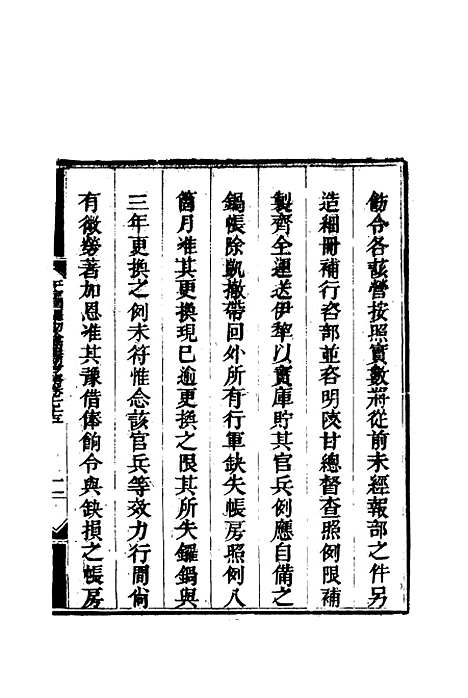 飭令各該營按照實數將從前未經報部之件另
造細冊補行咨部並咨明陝甘總督查照例限補
製齊全運送伊犂以實庫貯其官兵例應自備之
鍋帳除凱撤帶回外所有行軍缺失帳房照例八
箇月准其更換現已逾更換之限其所失鑼鍋與
三年更換之例未符惟念該官兵等效力行間尙
有微勞著加恩准其豫借俸餉令與缺損之帳房